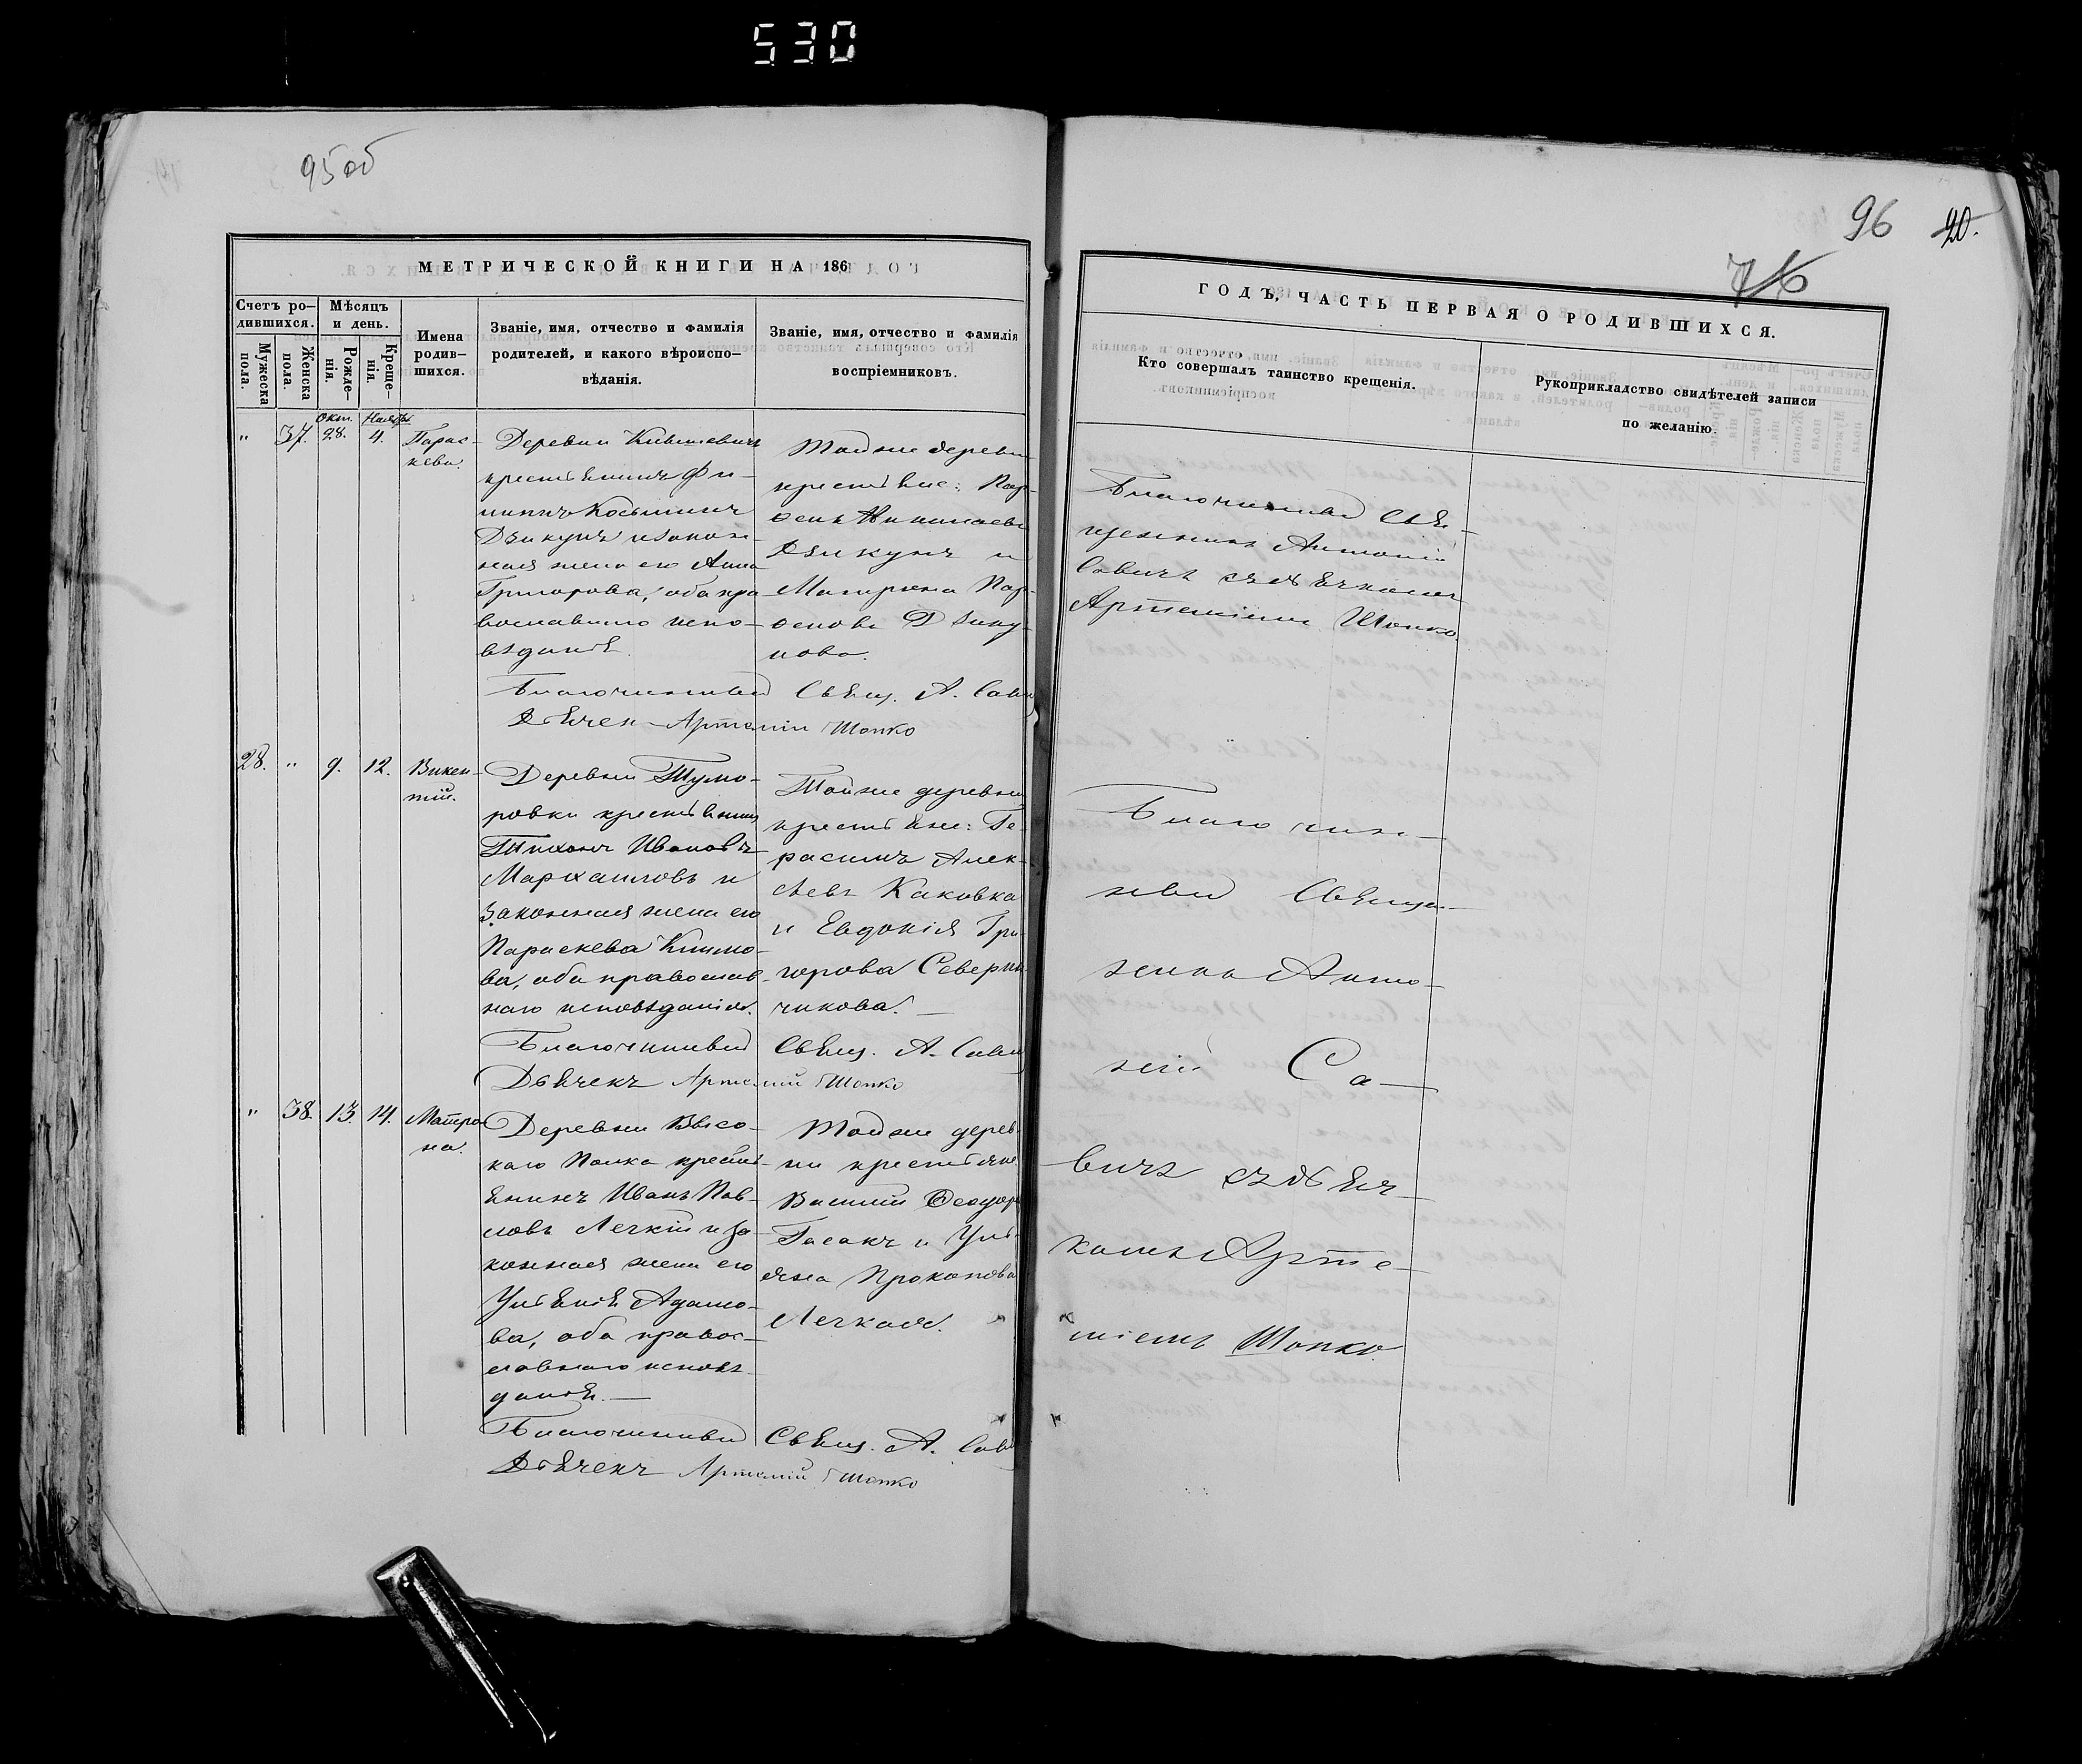 530
95 об
МЕТРИЧЕСКОЙ КНИГИ НА 186
Счетъ ро-
дившихся.
Мужеска пола.
Женска пола.
Мѣсяцъ
и день.
Рожде-
нія.
Креще-
нія.
Имена
родив-
шихся.
Званіе, имя, отчество и фамилія
родителей, и какого вѣроиспо-
вѣданія.
Званіе, имя, отчество и фамилія
воспріемниковъ.
Окт. Ноября
" 37. 28. 4.
Парас-
кева.
Деревни
крестьянинъ Фи-
липпъ Косьминъ
Дзикунъ и закон-
ная жена его Анна
Григорова, оба пра-
вославнаго испо-
вѣданія.
Тойже деревни
крестьяне: Пар-
ѳенъ Николаевъ
Дзикунъ и
Матрона Пар-
ѳенова Дзику-
нова.
Благочинный Свящ. А. Савич
Дьячекъ Артемій Шопко
28. " 9. 12.
Викен-
тій.
Деревни Тумо-
ровки крестьянинъ
Тихонъ Ивановъ
и
законная жена его
Параскева Климо-
ва, оба православ-
наго исповѣданія.
Тойже деревни
крестьяне: Ге-
расимъ Алек-
сѣевъ Каковка
и Евдокія Гри-
горова Северин-
чикова.
Благочинный Свящ. А. Савич
Дьячекъ Артемій Шопко
" 38. 13. 14.
Матро-
на.
Деревни Высо-
каго Полка кресть-
янинъ Иванъ Пав-
ловъ Легкій и за-
конная жена его
Ульянія Адамо-
ва, оба правос-
лавнаго исповѣ-
данія.
Тойже дерев-
ни крестьяне
Василій Ѳеодор
Гасакъ и Уль-
яна Прокопова
Легкая.
Благочинный Свящ. А. Савич
Дьячекъ Артемій Шопко
96 20.
76
ГОДЪ, ЧАСТЬ ПЕРВАЯ О РОДИВШИХСЯ.
Кто совершалъ таинство крещенія.
Рукоприкладство свидѣтелей записи
по желанію.
Благочинный Свя-
щенникъ Антоній
Савичъ съ дьячкомъ
Артеміемъ Шопко.
Благочин-
ный Священ-
никъ Анто-
ній Са-
вичъ съ дьяч-
комъ Арте-
міемъ Шопко.